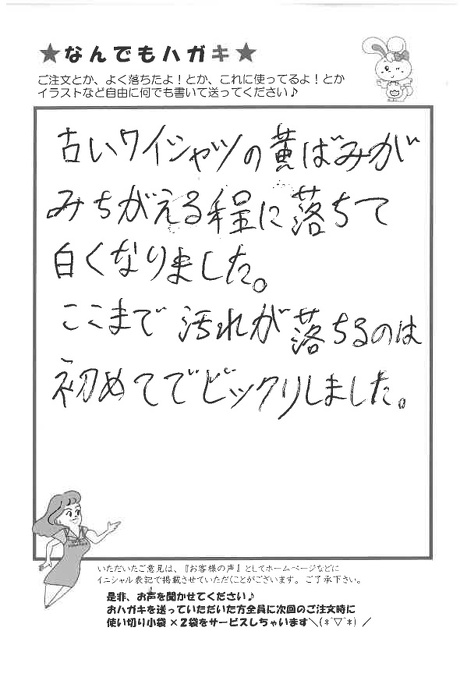 ★なんでもハガキ★
ご注文とか、よく落ちたよ！とか、これに使ってるよ！とか
イラストなど自由に何でも書いて送ってください♪
古いワイシャツの黄ばみが
みちがえる程に落ちて
白くなりました。
ここまで汚れが落ちるのは
初めてでビックリしました。
いただいたご意見は、『お客様の声』としてホームページなどに
イニシャル表記で掲載させていただくことがございます。ご了承下さい。
是非、お声を聞かせてください♪
おハガキを送っていただいた方全員に次回のご注文時に
使い切り小袋×2袋をサービスしちゃいます＼(*´▽`*)／